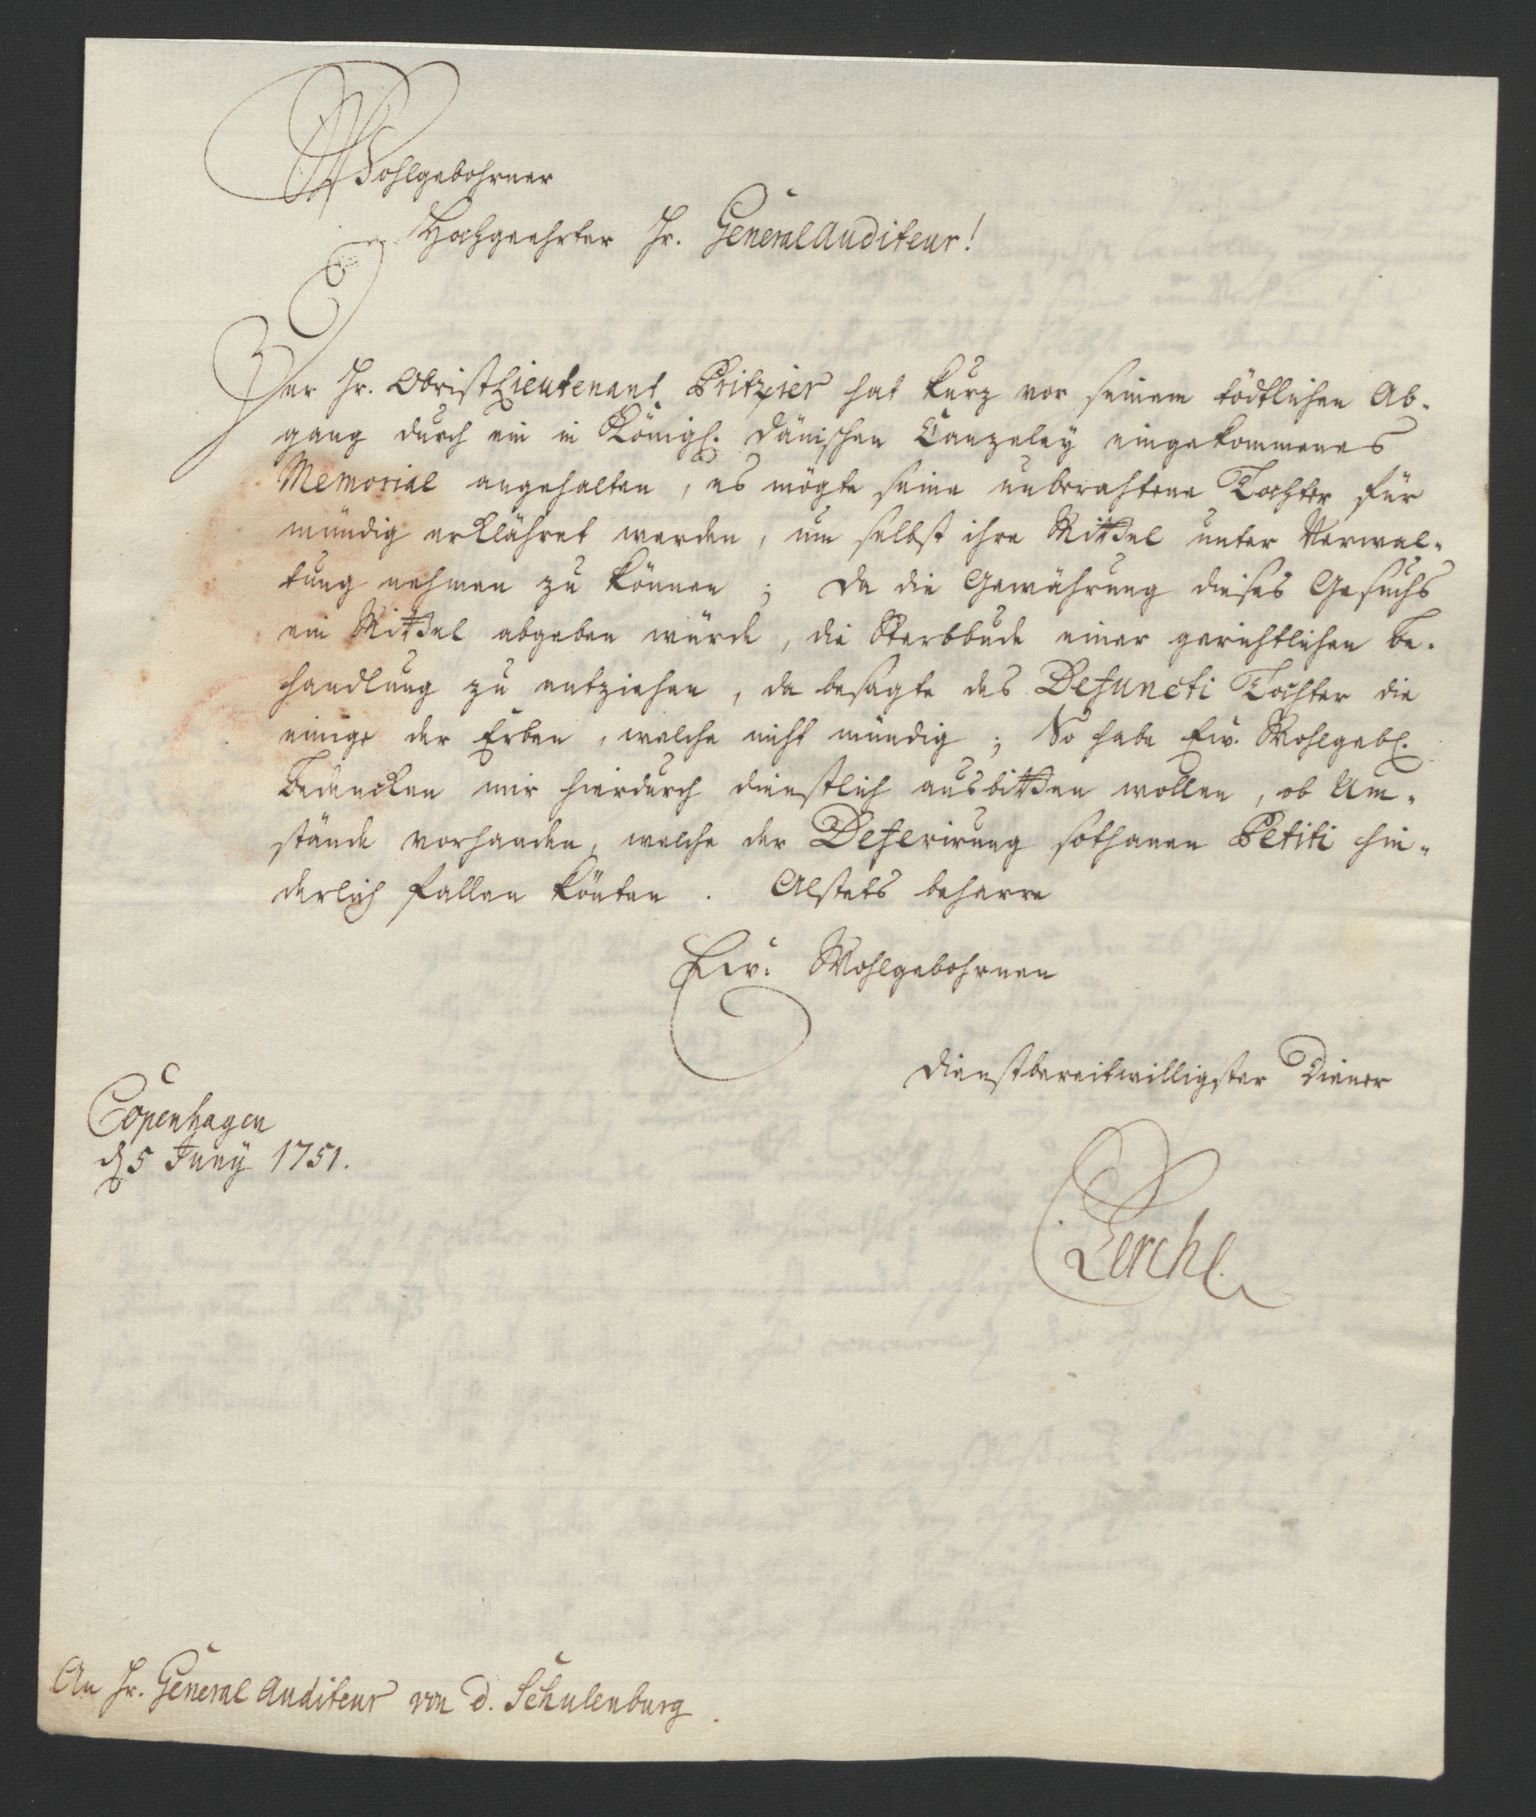 Wohlgebohrner
Hochgeehrter Hr. General Auditeur!
Der Hr. Obrist Lieutenant Pritzier hat kurz vor seinem tödtlichen Ab-
gang durch ein in Königl. Dänischen Canzeley eingekommenes
Memorial angehalten, es mögte seine unberahtene Tochter für
mündig erklähret werden, um selbst ihre Mittel unter Verwal-
tung nehmen zu können; Da die Gewährung dieses Gesuchs
ein Mittel abgeben würde, die Sterbbude einer gerichtlichen Be-
handlung zu entziehen, da besagte des Defuncti Tochter die
einige der Erben, welche nicht mündig; So habe Ew. Wohlgebl.
Bedencken mir hierdurch dienstlich ausbitten wollen, ob Um-
stände vorhanden, welche der Deferirung sothanen Petiti hin-
derlich fallen könten. Alstets beharre
Ew. Wohlgebohrnen
dienstbereitwilligster Diener
Copenhagen
d 5 Juny 1751.
Lerche.
An Hr. General Auditeur von d. Schulenburg.